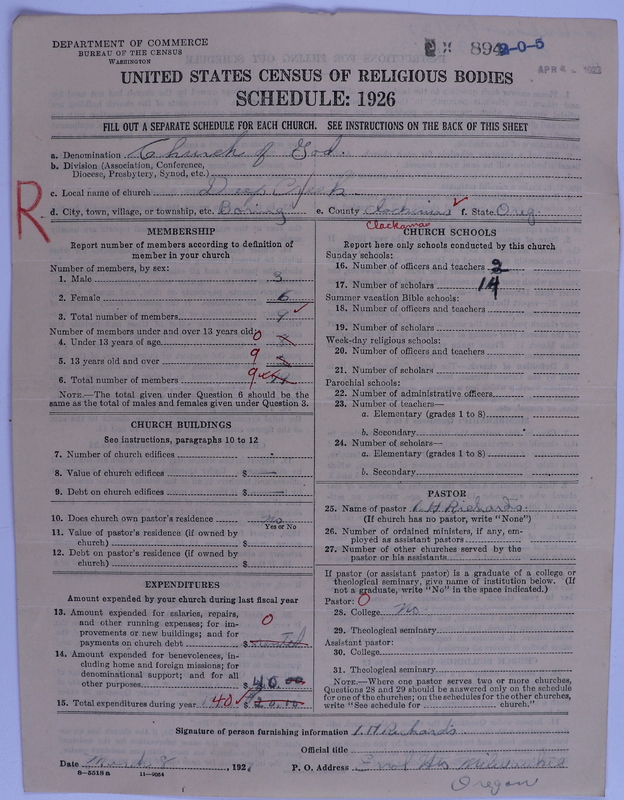 DEPARTMENT OF COMMERCE
BUREAU OF THE CENSUS
WASHINGTON
894 2-0-5
APR
UNITED STATES CENSUS OF RELIGIOUS BODIES
SCHEDULE: 1926
FILL OUT A SEPARATE SCHEDULE FOR EACH CHURCH. SEE INSTRUCTIONS ON THE BACK OF THIS SHEET
a. Denomination Church of God.
b. Division (Association, Conference, Diocese, Presbytery, Synod, etc.)
c. Local name of church Deep Creek
R
d. City, town, village, or township, etc. Boring e. County Clackamas f. State Oreg
Clackamas
MEMBERSHIP
Report number of members according to definition of
member in your church
Number of members, by sex:
1. Male 3
2. Female 6
3. Total number of members 9
Number of members under and over 13 years old:
4. Under 13 years of age 0
5. 13 years old and over 9
6. Total number of members 9
NOTE.—The total given under Question 6 should be the
same as the total of males and females given under Question 3.
CHURCH BUILDINGS
See instructions, paragraphs 10 to 12
7. Number of church edifices
8. Value of church edifices $
9. Debt on church edifices $
10. Does church own pastor's residence No
Yes or No
11. Value of pastor's residence (if owned by
church) $
12. Debt on pastor's residence (if owned by
church) $
EXPENDITURES
Amount expended by your church during last fiscal year
13. Amount expended for salaries, repairs,
and other running expenses; for im-
provements or new buildings; and for
payments on church debt $ 0
14. Amount expended for benevolences, in-
cluding home and foreign missions; for
denominational support; and for all
other purposes $ 40.00
15. Total expenditures during year 40 $
CHURCH SCHOOLS
Report here only schools conducted by this church
Sunday schools:
16. Number of officers and teachers 2
17. Number of scholars 14
Summer vacation Bible schools:
18. Number of officers and teachers
19. Number of scholars
Week-day religious schools:
20. Number of officers and teachers
21. Number of scholars
Parochial schools:
22. Number of administrative officers
23. Number of teachers—
a. Elementary (grades 1 to 8)
b. Secondary
24. Number of scholars—
a. Elementary (grades 1 to 8)
b. Secondary
PASTOR
25. Name of pastor I. H Richards
(If church has no pastor, write "None")
26. Number of ordained ministers, if any, em-
ployed as assistant pastors
27. Number of other churches served by the
pastor or his assistants
If pastor (or assistant pastor) is a graduate of a college or
theological seminary, give name of institution below. (If
not a graduate, write "No" in the space indicated.)
Pastor: 0
28. College No
29. Theological seminary
Assistant pastor:
30. College
31. Theological seminary
NOTE.—Where one pastor serves two or more churches,
Questions 28 and 29 should be answered only on the schedule
for one of the churches; on the schedules for the other churches,
write "See schedule for church."
Signature of person furnishing information I. H Richards
Official title
Date March 8, 192 P. O. Address Errol Hts Milwaukie
8-5518a 11-9054
Oregon